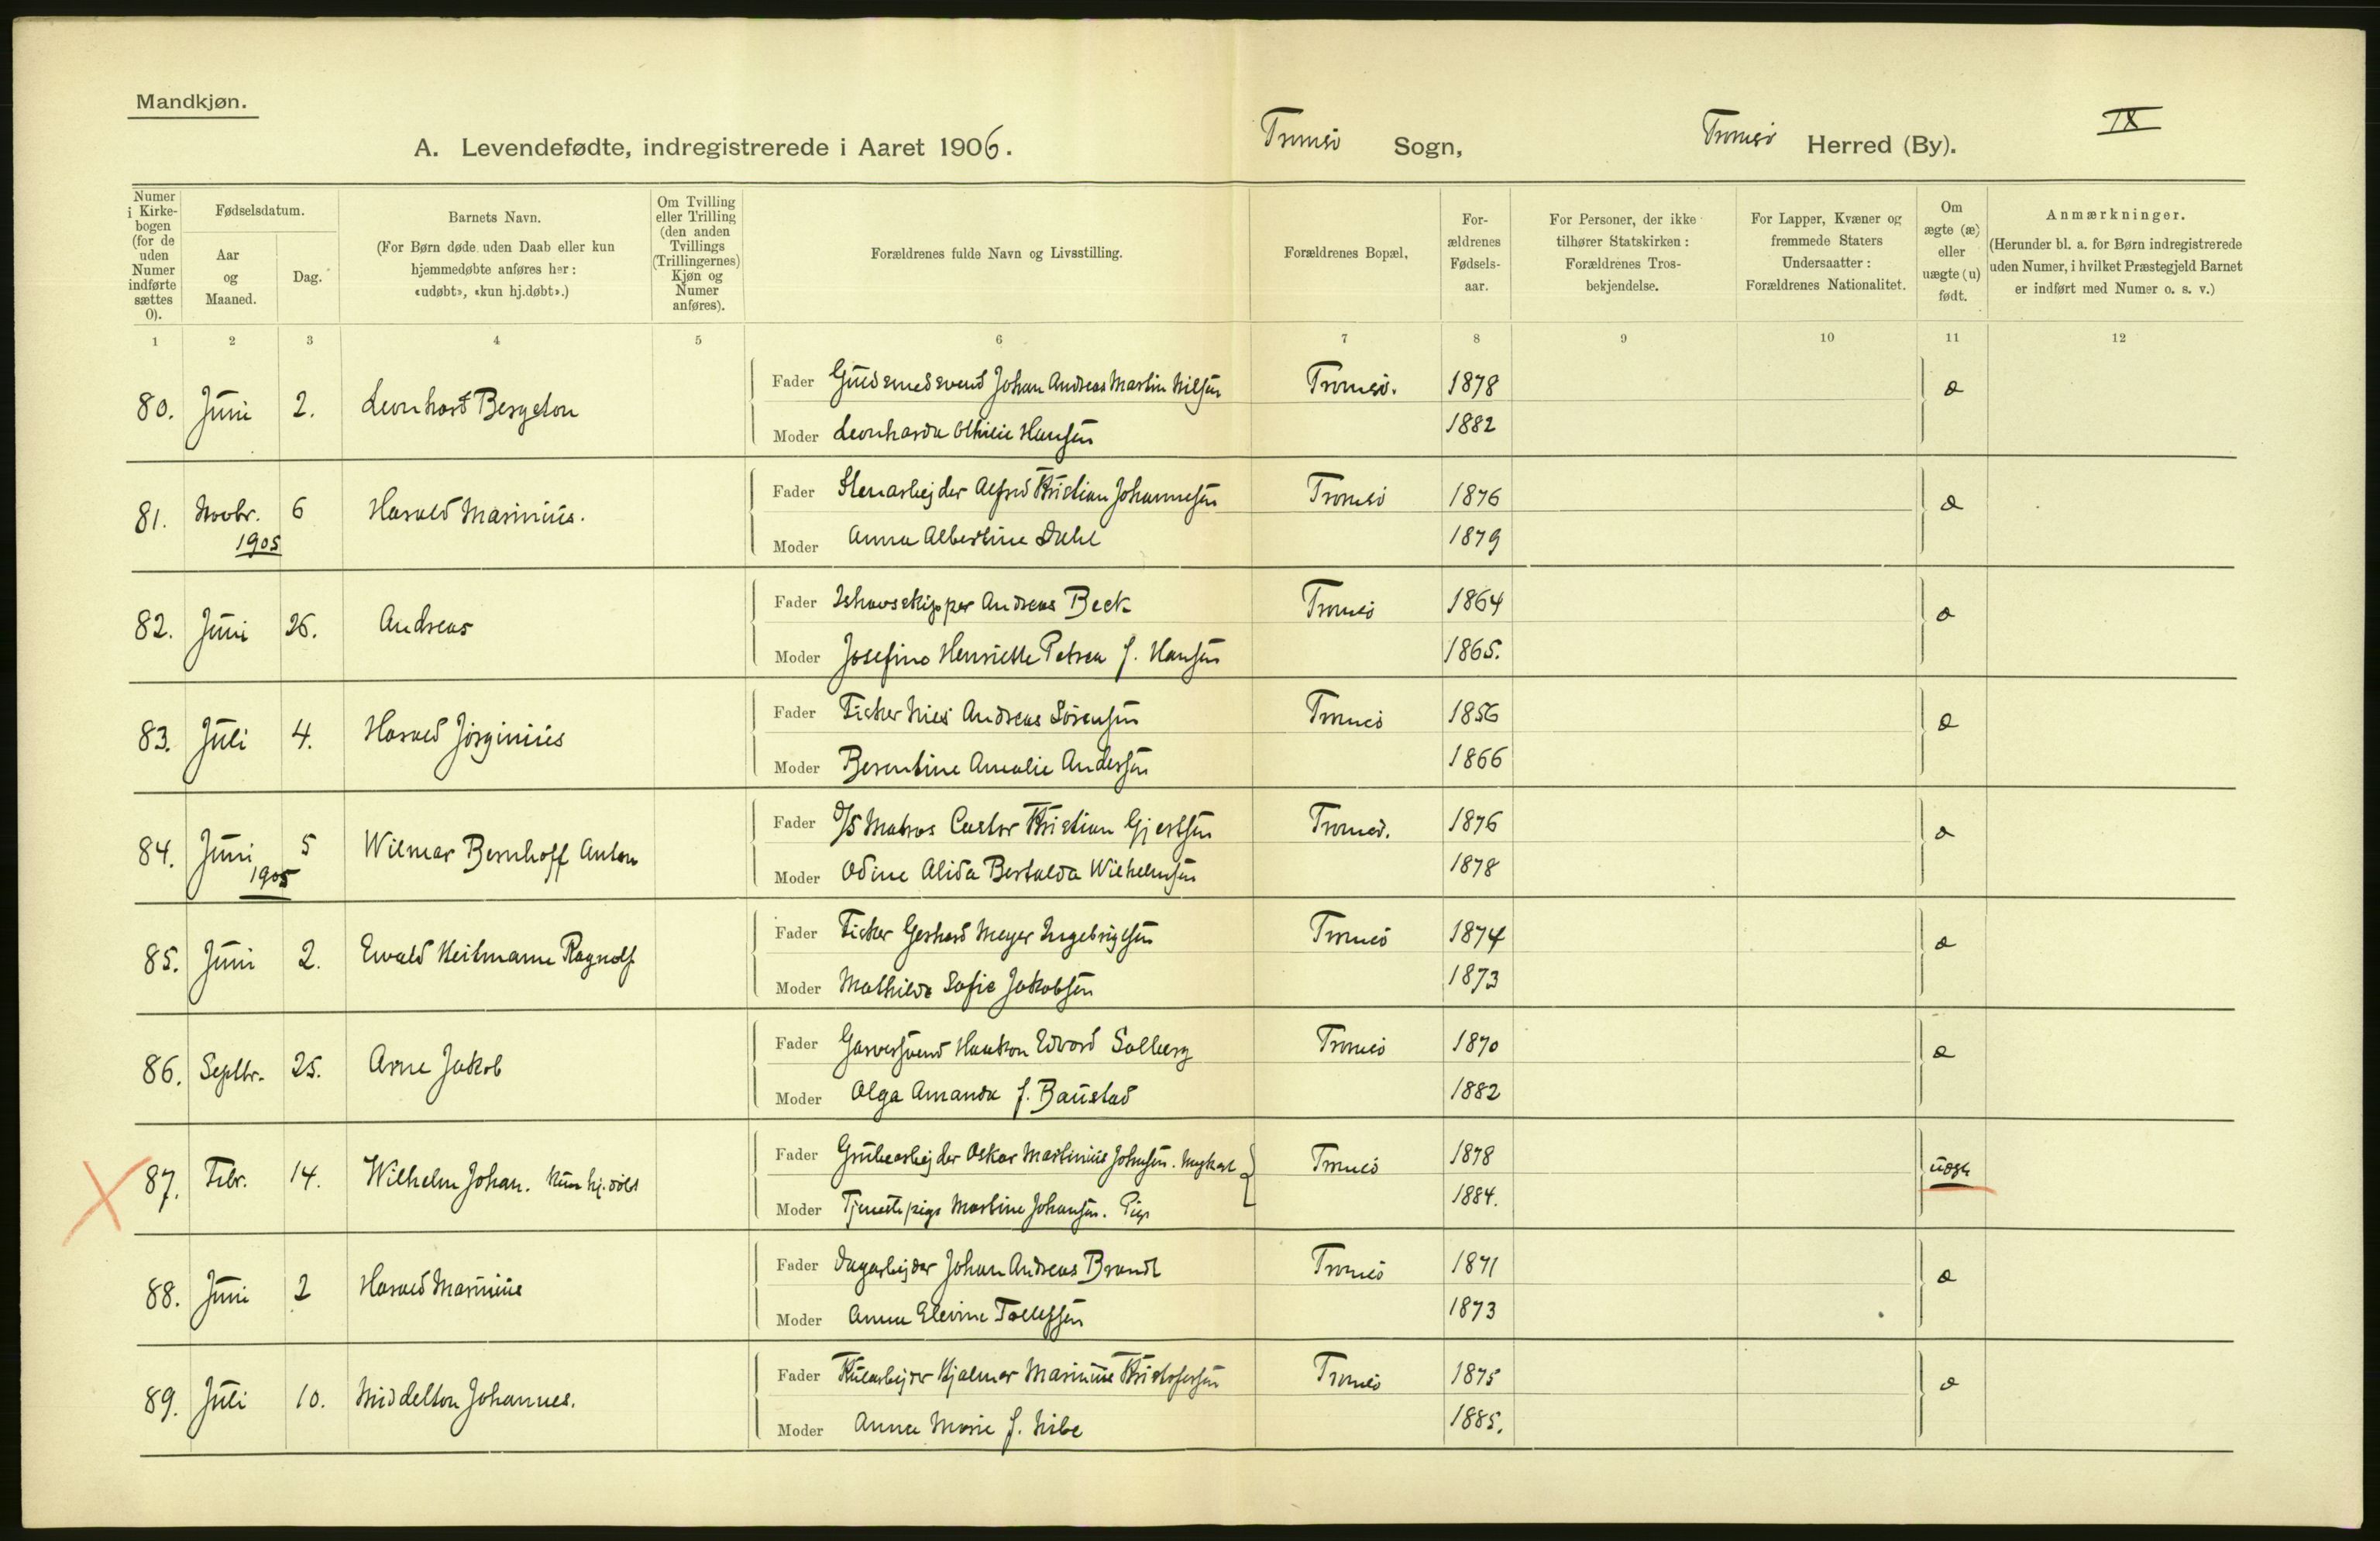 Mandkjøn.
A. Levendefødte, indregistrerede i Aaret 1906. Tromsö Sogn, Tromsö Herred (By). IX
Numer i Kirkebogen (for de uden Numer indførte sættes 0).
Fødselsdatum.
Aar og Maaned.
Dag.
Barnets Navn.
(For Børn døde uden Daab eller kun hjemmedøbte anføres her: «udøbt», «kun hj.døbt».)
Om Tvilling eller Trilling (den anden Tvillings (Trillingernes) Kjøn og Numer anføres).
Forældrenes fulde Navn og Livsstilling.
Forældrenes Bopæl,
Forældrenes Fødselsaar.
For Personer, der ikke tilhører Statskirken: Forældrenes Trosbekjendelse.
For Lapper, Kvæner og fremmede Staters Undersaatter: Forældrenes Nationalitet.
Om ægte (æ) eller uægte (u) født.
Anmærkninger.
(Herunder bl. a. for Børn indregistrerede uden Numer, i hvilket Præstegjeld Barnet er indført med Numer o. s. v.)
1 2 3 4 5 6 7 8 9 10 11 12
80. Juni 2. Leonhard Bergeton Fader Guldsmedsvend Johan Andreas Martin Nilsen Tromsö. 1878 æ
Moder Leonharda Othilie Hansen 1882
81. Novbr. 1905 6 Harald Marinius. Fader Stenarbejder Alfred Kristian Johannesen Tromsö 1876 æ
Moder Anna Albertine Dahl 1879
82. Juni 26. Andreas Fader Ishavsskipper Andreas Beck Tromsö 1864 æ
Moder Josefine Henriette Petrea f. Hansen 1865.
83. Juli 4. Harald Jörginius Fader Fisker Nils Andreas Sörensen Tromsö 1856 æ
Moder Berentine Amalie Andersen 1866
84. Juni 1905 5 Wilmar Bernhoff Anton Fader D/S Matros Castor Kristian Gjertsen Tromsö. 1876 æ
Moder Odine Alida Bertalda Wilhelmsen 1878
85. Juni 2. Ewald Heitmann Ragnolf Fader Fisker Gerhard Meyer Ingebrigtsen Tromsö 1874 æ
Moder Mathilde Sofie Jakobsen 1873
86. Septbr. 25. Arne Jakob Fader Garversvend Haakon Edvard Solberg Tromsö 1870 æ
Moder Olga Amanda f. Baustad 1882
87. Febr. 14. Wilhelm Johan. Kun hj. döbt Fader Grubearbejder Oskar Martinius Johnsen. Ungkarl Tromsö 1878 uægte
Moder Tjenestepige Martine Johansen. Pige 1884.
88. Juni 2 Harald Marinius Fader Dagarbejder Johan Andreas Brandt Tromsö 1871 æ
Moder Anna Elevine Tollefsen 1873
89. Juli 10. Middelton Johannes. Fader Kularbejder Hjalmar Marinius Kristofersen Tromsö 1875 æ
Moder Anna Marie f. Nibe 1885.